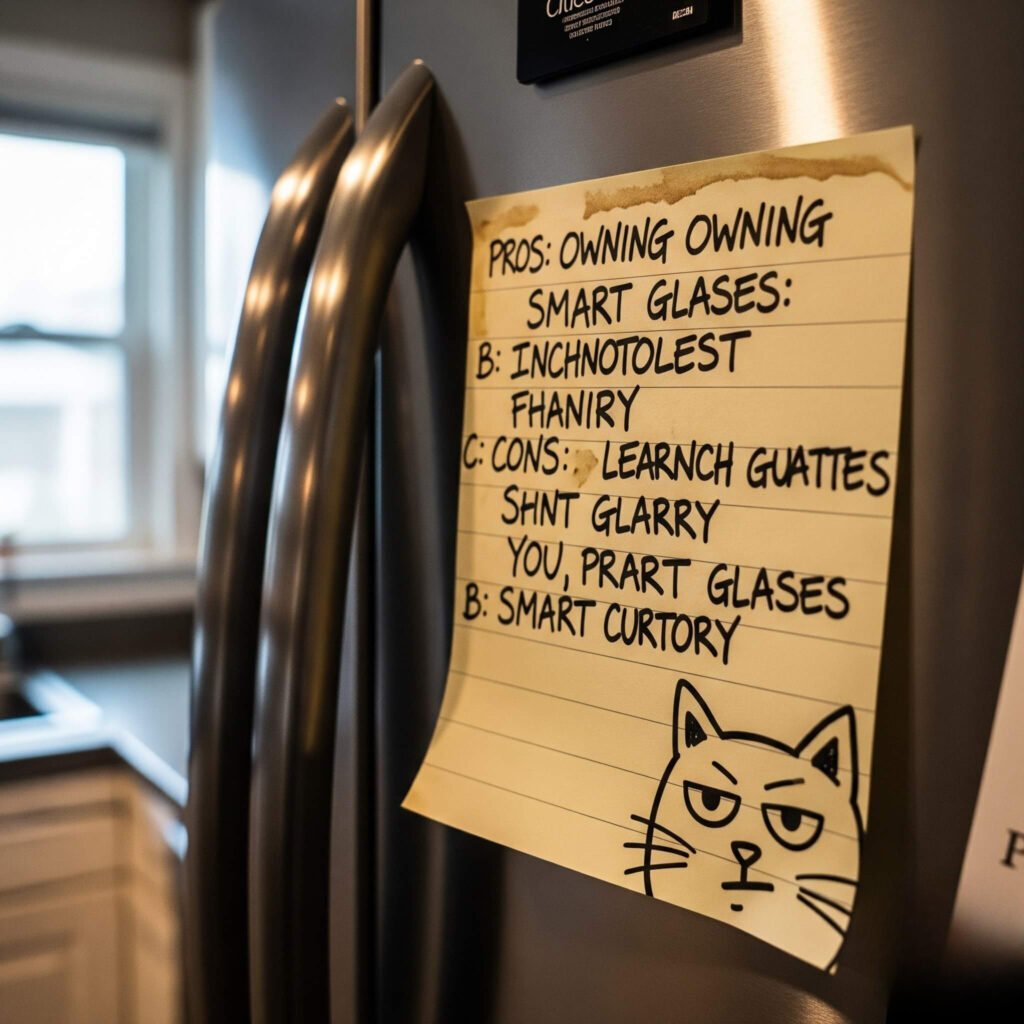 PROS: OWNING OWNING
SMART GLASES:
B: INCHNOTOLEST
FHANIRY
C: CONS: LEARNCH GUATTES
SHNT GLARRY
YOU, PRART GLASES
B: SMART CURTORY